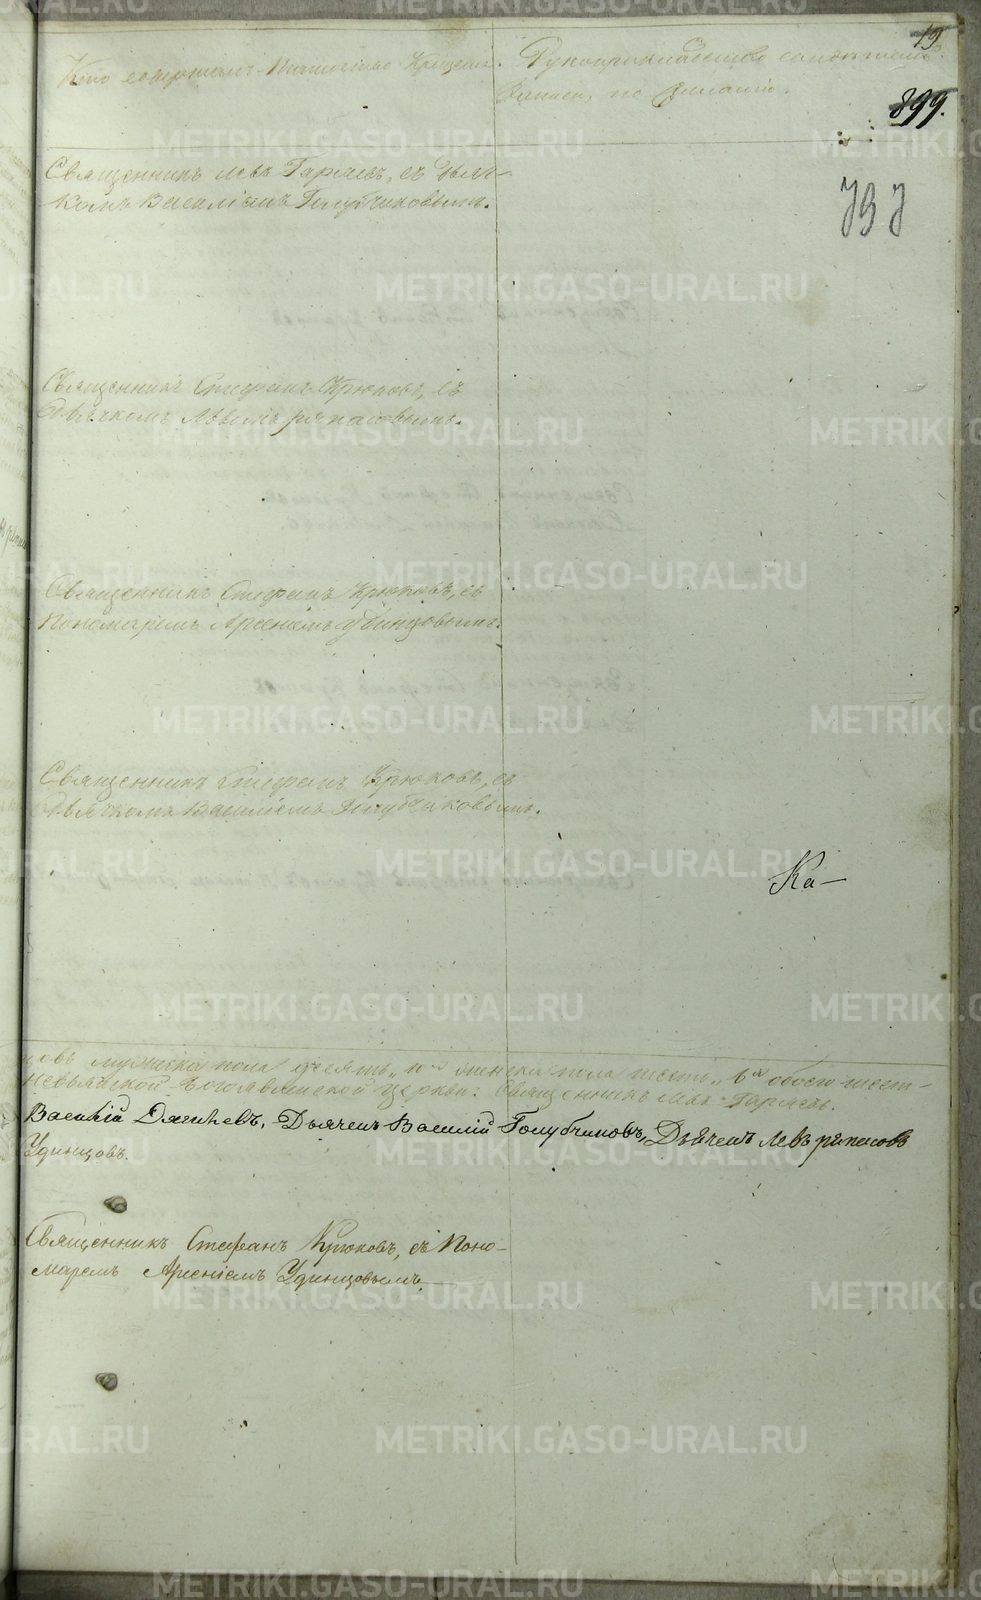 19
Кто совершалъ Таинство Крещенія.
Рукоприкладство свидѣтелей
записи, по желанію.
899.
797
Священникъ Левъ Гаряевъ, съ Дьяч-
комъ Василіемъ Голубчиковымъ.
Священникъ Стефанъ Крюковъ, съ
Дьячкомъ Львомъ
Священникъ Стефанъ Крюковъ, съ
Пономаремъ Арсеніемъ Удинцовымъ.
Священникъ Стефанъ Крюковъ, съ
Дьячкомъ Василіемъ Голубчиковымъ.
Ка—
мужеска пола женска пола обоего
Невьянской Богоявленской церкви: Священникъ Левъ Гаряевъ.
Василій Дягилевъ, Дьячекъ Василій Голубчиковъ, Дьячекъ Левъ
Удинцовъ.
Священникъ Стефанъ Крюковъ, съ Поно-
маремъ Арсеніемъ Удинцовымъ.
METRIKI.GASO-URAL.RU